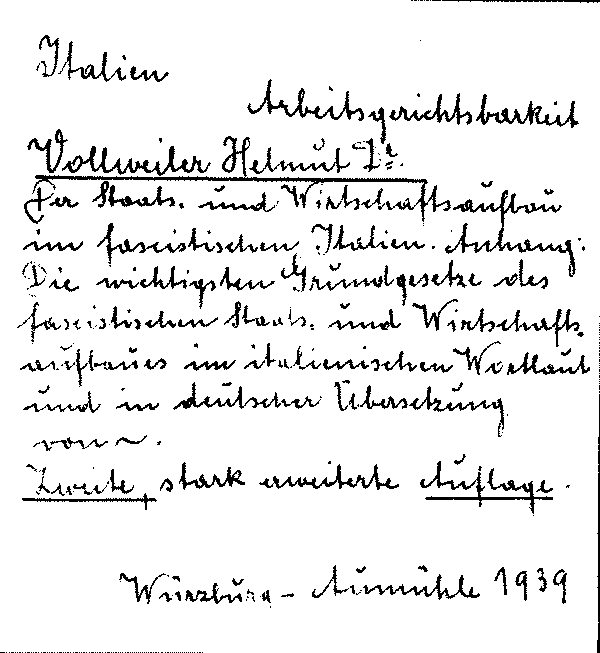 Italien
Arbeitsgerichtsbarkeit
Vollweiler Helmut Dr.
Der Staats- und Wirtschaftsaufbau
im fascistischen Italien. Anhang:
Die wichtigsten Grundgesetze des
fascistischen Staats- und Wirtschafts-
aufbaues im italienischen Wortlaut
und in deutscher Übersetzung
von ~.
Zweite, stark erweiterte Auflage.
Würzburg - Aumühle 1939